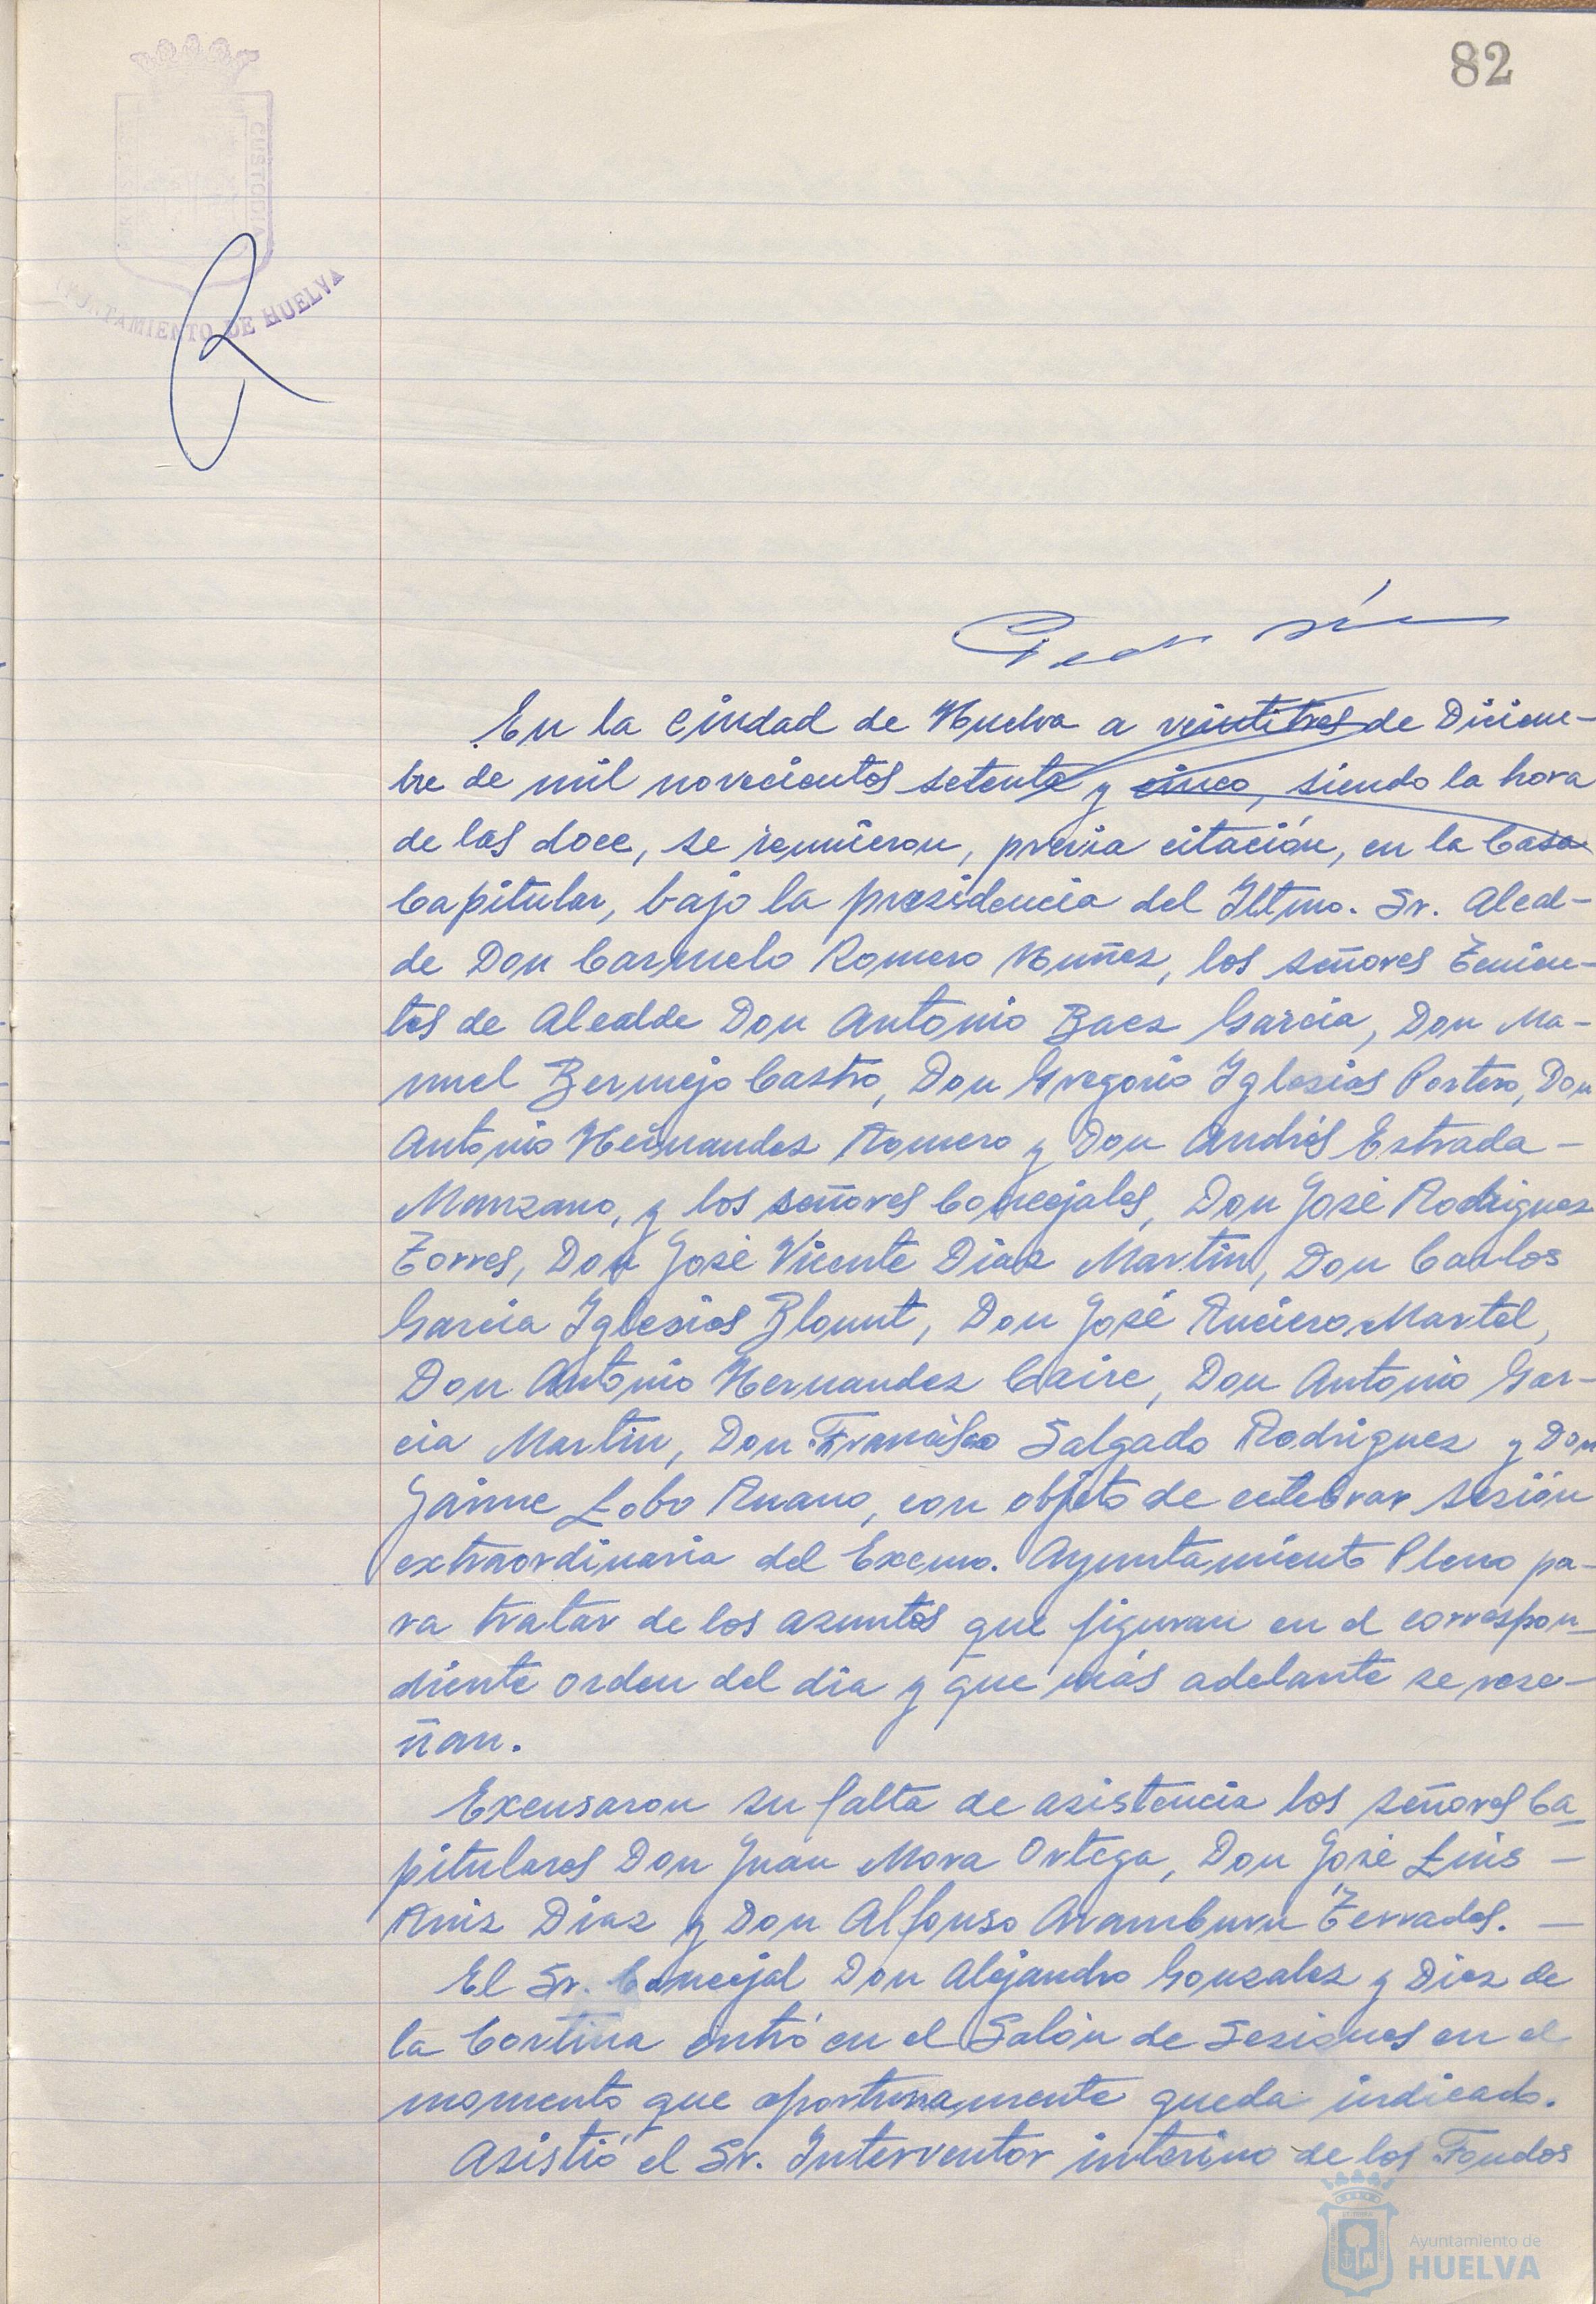 82
CUSTODIA
AYUNTAMIENTO DE HUELVA
En la Ciudad de Huelva a veintitres de Diciem-
bre de mil novecientos setenta y cinco, siendo la hora
de las doce, se reunieron, previa citación, en la Casa
Capitular, bajo la presidencia del Iltmo. Sr. Alcal-
de Don Carmelo Romero Nuñez, los señores Tenien-
tes de Alcalde Don Antonio Baez Garcia, Don Ma-
nuel Bermejo Castro, Don Gregorio Iglesias Portero, Don
Antonio Hernandez Romero y Don Andrés Estrada -
Manzano, y los señores Concejales, Don José Rodriguez
Torres, Don José Vicente Diaz Martin, Don Carlos
Garcia Iglesias Blount, Don José Ruciero Martel,
Don Antonio Hernandez Caire, Don Antonio Gar-
cia Martin, Don Francisco Salgado Rodriguez y Don
Jaime Lobo Ruano, con objeto de celebrar sesión
extraordinaria del Excmo. Ayuntamiento Pleno pa-
ra tratar de los asuntos que figuran en el correspon-
diente orden del dia y que más adelante se rese-
ñan.
Excusaron su falta de asistencia los señores Ca-
pitulares Don Juan Mora Ortega, Don José Luis -
Ruiz Diaz y Don Alfonso Aramburu Terrados. -
El Sr. Concejal Don Alejandro Gonzalez y Diez de
la Cortina entró en el Salón de Sesiones en el
momento que oportunamente queda indicado.
Asistió el Sr. Interventor interino de los Fondos
Ayuntamiento de
HUELVA